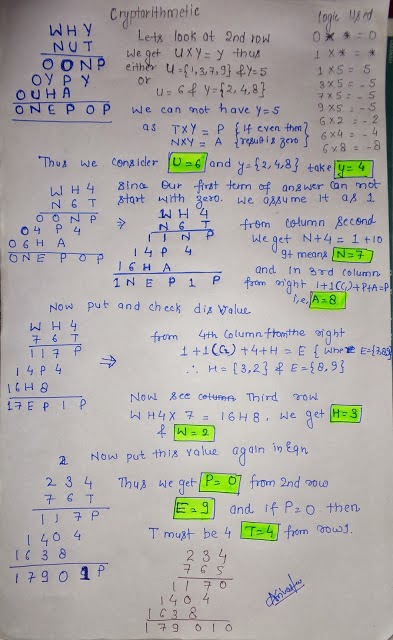 Cryptorithmetic
Logic Used
W H Y
N U T
O O N P
O Y P Y
O U H A
O N E P O P
Lets look at 2nd row
We get U X Y = Y thus
either U = {1,3,7,9} & Y=5
or
U = 6 & Y = {2,4,8}
We can not have Y=5
as T X Y = P { If even then
N X Y = A { result is zero }
0 * * = 0
1 * * = *
1 X 5 = 5
3 X 5 = - 5
7 X 5 = - 5
9 X 5 = - 5
6 X 2 = - 2
6 X 4 = - 4
6 X 8 = - 8
Thus we consider U = 6 and y = {2,4,8} take y = 4
Since Our first term of answer can not
start with zero. we assume it as 1
W H 4
N 6 T
O O N P
O 4 P 4
O 6 H A
O N E P O P
⇒
W H 4
N 6 T
1 1 N P
1 4 P 4
1 6 H A
1 N E P 1 P
from column second
We get N+4 = 1 + 10
It means N = 7
and in 3rd column
from right 1+1(C1)+P+A=P
i,e, A = 8
Now put and check dis value
W H 4
7 6 T
1 1 7 P
1 4 P 4
1 6 H 8
1 7 E P 1 P
⇒
from 4th Column from the right
1 + 1(C2) + 4 + H = E
∴ H = {3,2} & E = {8,9}
Now see column Third row
W H 4 X 7 = 1 6 H 8. We get H = 3
& W = 2
Now put this value again in Eqn
2 3 4
7 6 T
1 1 7 P
1 4 0 4
1 6 3 8
1 7 9 0 1 P
Thus we get P = 0 from 2nd row
E = 9 and if P = 0 then
T must be 4 T = 4 from row 1.
2 3 4
7 6 5
1 1 7 0
1 4 0 4
1 6 3 8
1 7 9 0 1 0